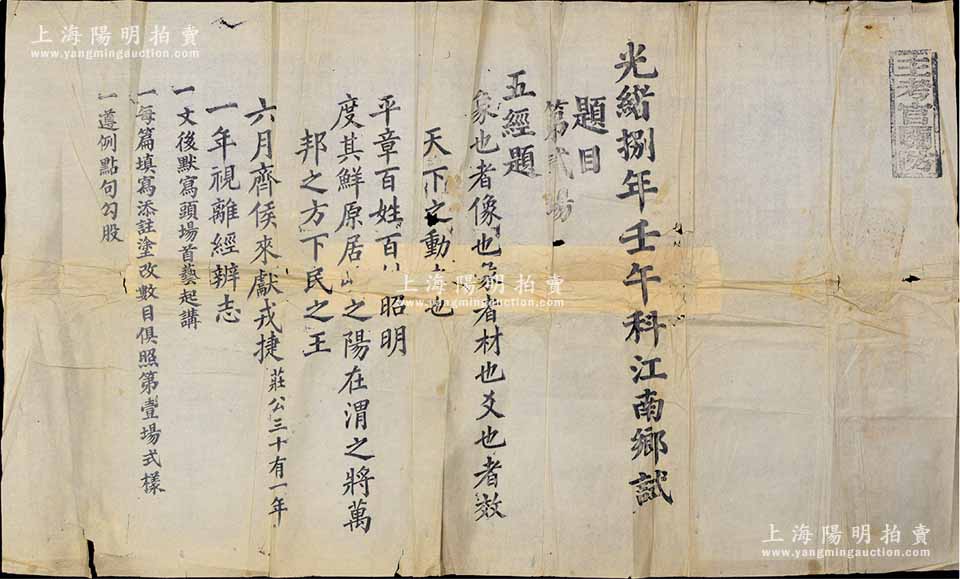 主考官關防
光緒捌年壬午科江南鄉試
題目
第貳場
五經題
象也者像也 者材也爻也者效
天下之動 也
平章百姓百 昭明
度其鮮原居 之陽在渭之將萬
邦之方下民之王
六月齊侯來獻戎捷 莊公三十有一年
一年視離經辨志
一文後默寫頭場首藝起講
一每篇填寫添註塗改數目俱照第壹場式樣
一遵例點句勾股
上海陽明拍賣
www.yangmingauction.com
上海陽明拍賣
www.yangmingauction.com
上海陽明拍賣
www.yangmingauction.com